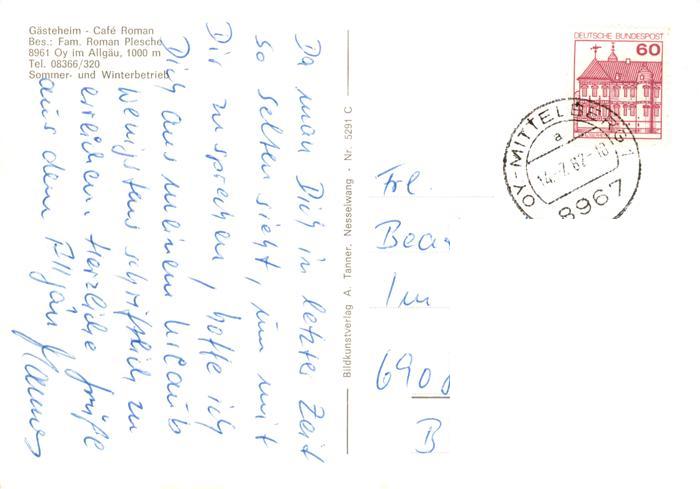 Gästeheim - Café Roman
Bes.: Fam. Roman Plesche
8961 Oy im Allgäu, 1000 m
Tel. 08366/320
Sommer- und Winterbetrieb
Da man Dich in letzter Zeit
so selten sieht, um mit
Dir zu sprechen, hoffe ich
Dich aus meinem Urlaub
wenigstens schriftlich zu
erreichen. Herzliche Grüße
aus dem Allgäu Hannes
Bildkunstverlag A. Tanner, Nesselwang - Nr. 5291 C
DEUTSCHE BUNDESPOST
60
OY-MITTELBERG 1
a
14.-7.87-18
8967
Frl.
Bea
Im
690
B